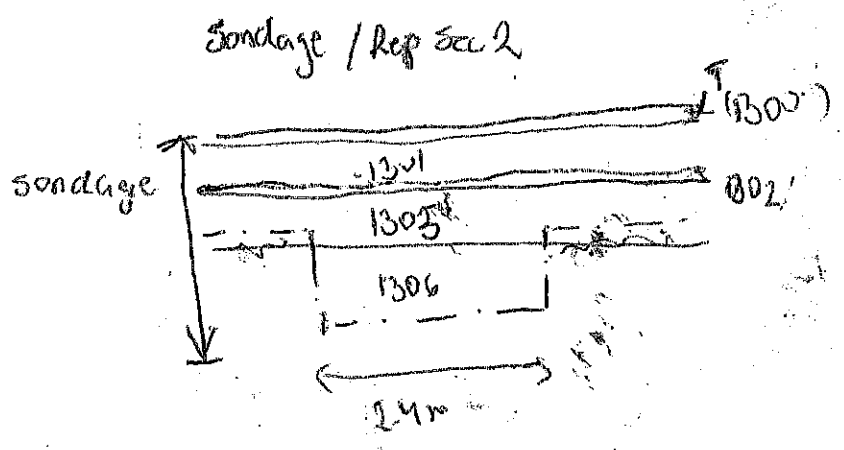 Sondage / Rep Sec 2
(1300)
1301
sondage
1302
1305
1306
2.4m